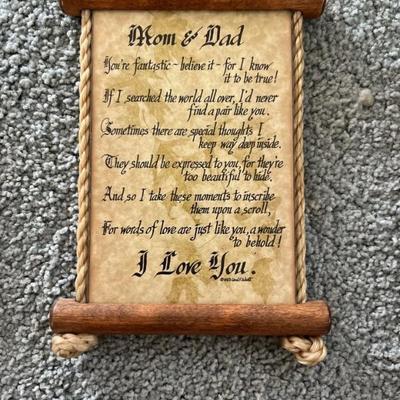 Mom & Dad
You're fantastic - believe it - for I know
it to be true!
If I searched the world all over, I'd never
find a pair like you.
Sometimes there are special thoughts I
keep way deep inside.
They should be expressed to you, for they're
too beautiful to hide.
And so I take these moments to inscribe
them upon a scroll,
For words of love are just like you, a wonder
to behold!
I Love You.